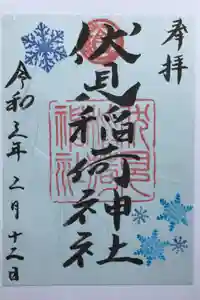 奉拝
伏見稲荷神社
令和三年二月十二日